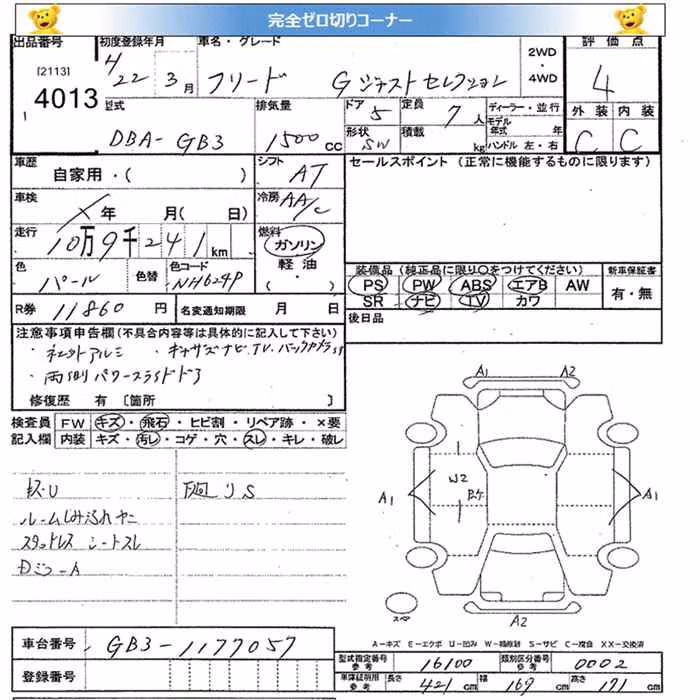 完全ゼロ切りコーナー
出品番号 初度登録年月 車名・グレード 2WD・4WD 評価点
[2113] 4013
H22年3月 フリード G ジャストセレクション 4
型式 排気量 ドア 5 定員 7人 ディーラー・並行 外装 内装
DBA-GB3 1500cc 形状 SW 積載 kg モデル年式 年 ハンドル 左・右 C C
車歴 自家用・( ) シフト AT セールスポイント (正常に機能するものに限ります)
車検 ×年 月( 日) 冷房 AA/C
走行 10万9千241km 燃料 ガソリン 軽油・( )
色 パール 色替 色コード NH624P 装備品 (純正品に限り○をつけてください) 新車保証書
PS PW ABS エアB AW 有・無
SR ナビ TV カワ
R券 11860円 名変通知期限 月 日 後日品
注意事項申告欄 (不具合内容等は具体的に記入して下さい)
・キャサズナビ.TV.バックカメラ
・両側パワースライドドア
修復歴 有 [箇所 ]
検査員記入欄 FW キズ・飛石・ヒビ割・リペア跡・×要
内装 キズ・汚レ・コゲ・穴・スレ・キレ・破レ
ルームしみ汚れヤニ
スタッドレス シートスレ
A1 A2
W2
A1 A1
A2
スペア
A-キズ E-エクボ U-凹み W-補修跡 S-サビ C-腐食 XX-交換済
車台番号 GB3-1177057
登録番号
型式指定番号 参考 16100 類別区分番号 参考 0002
車庫証明用 参考 長さ 421cm 幅 169cm 高さ 171cm